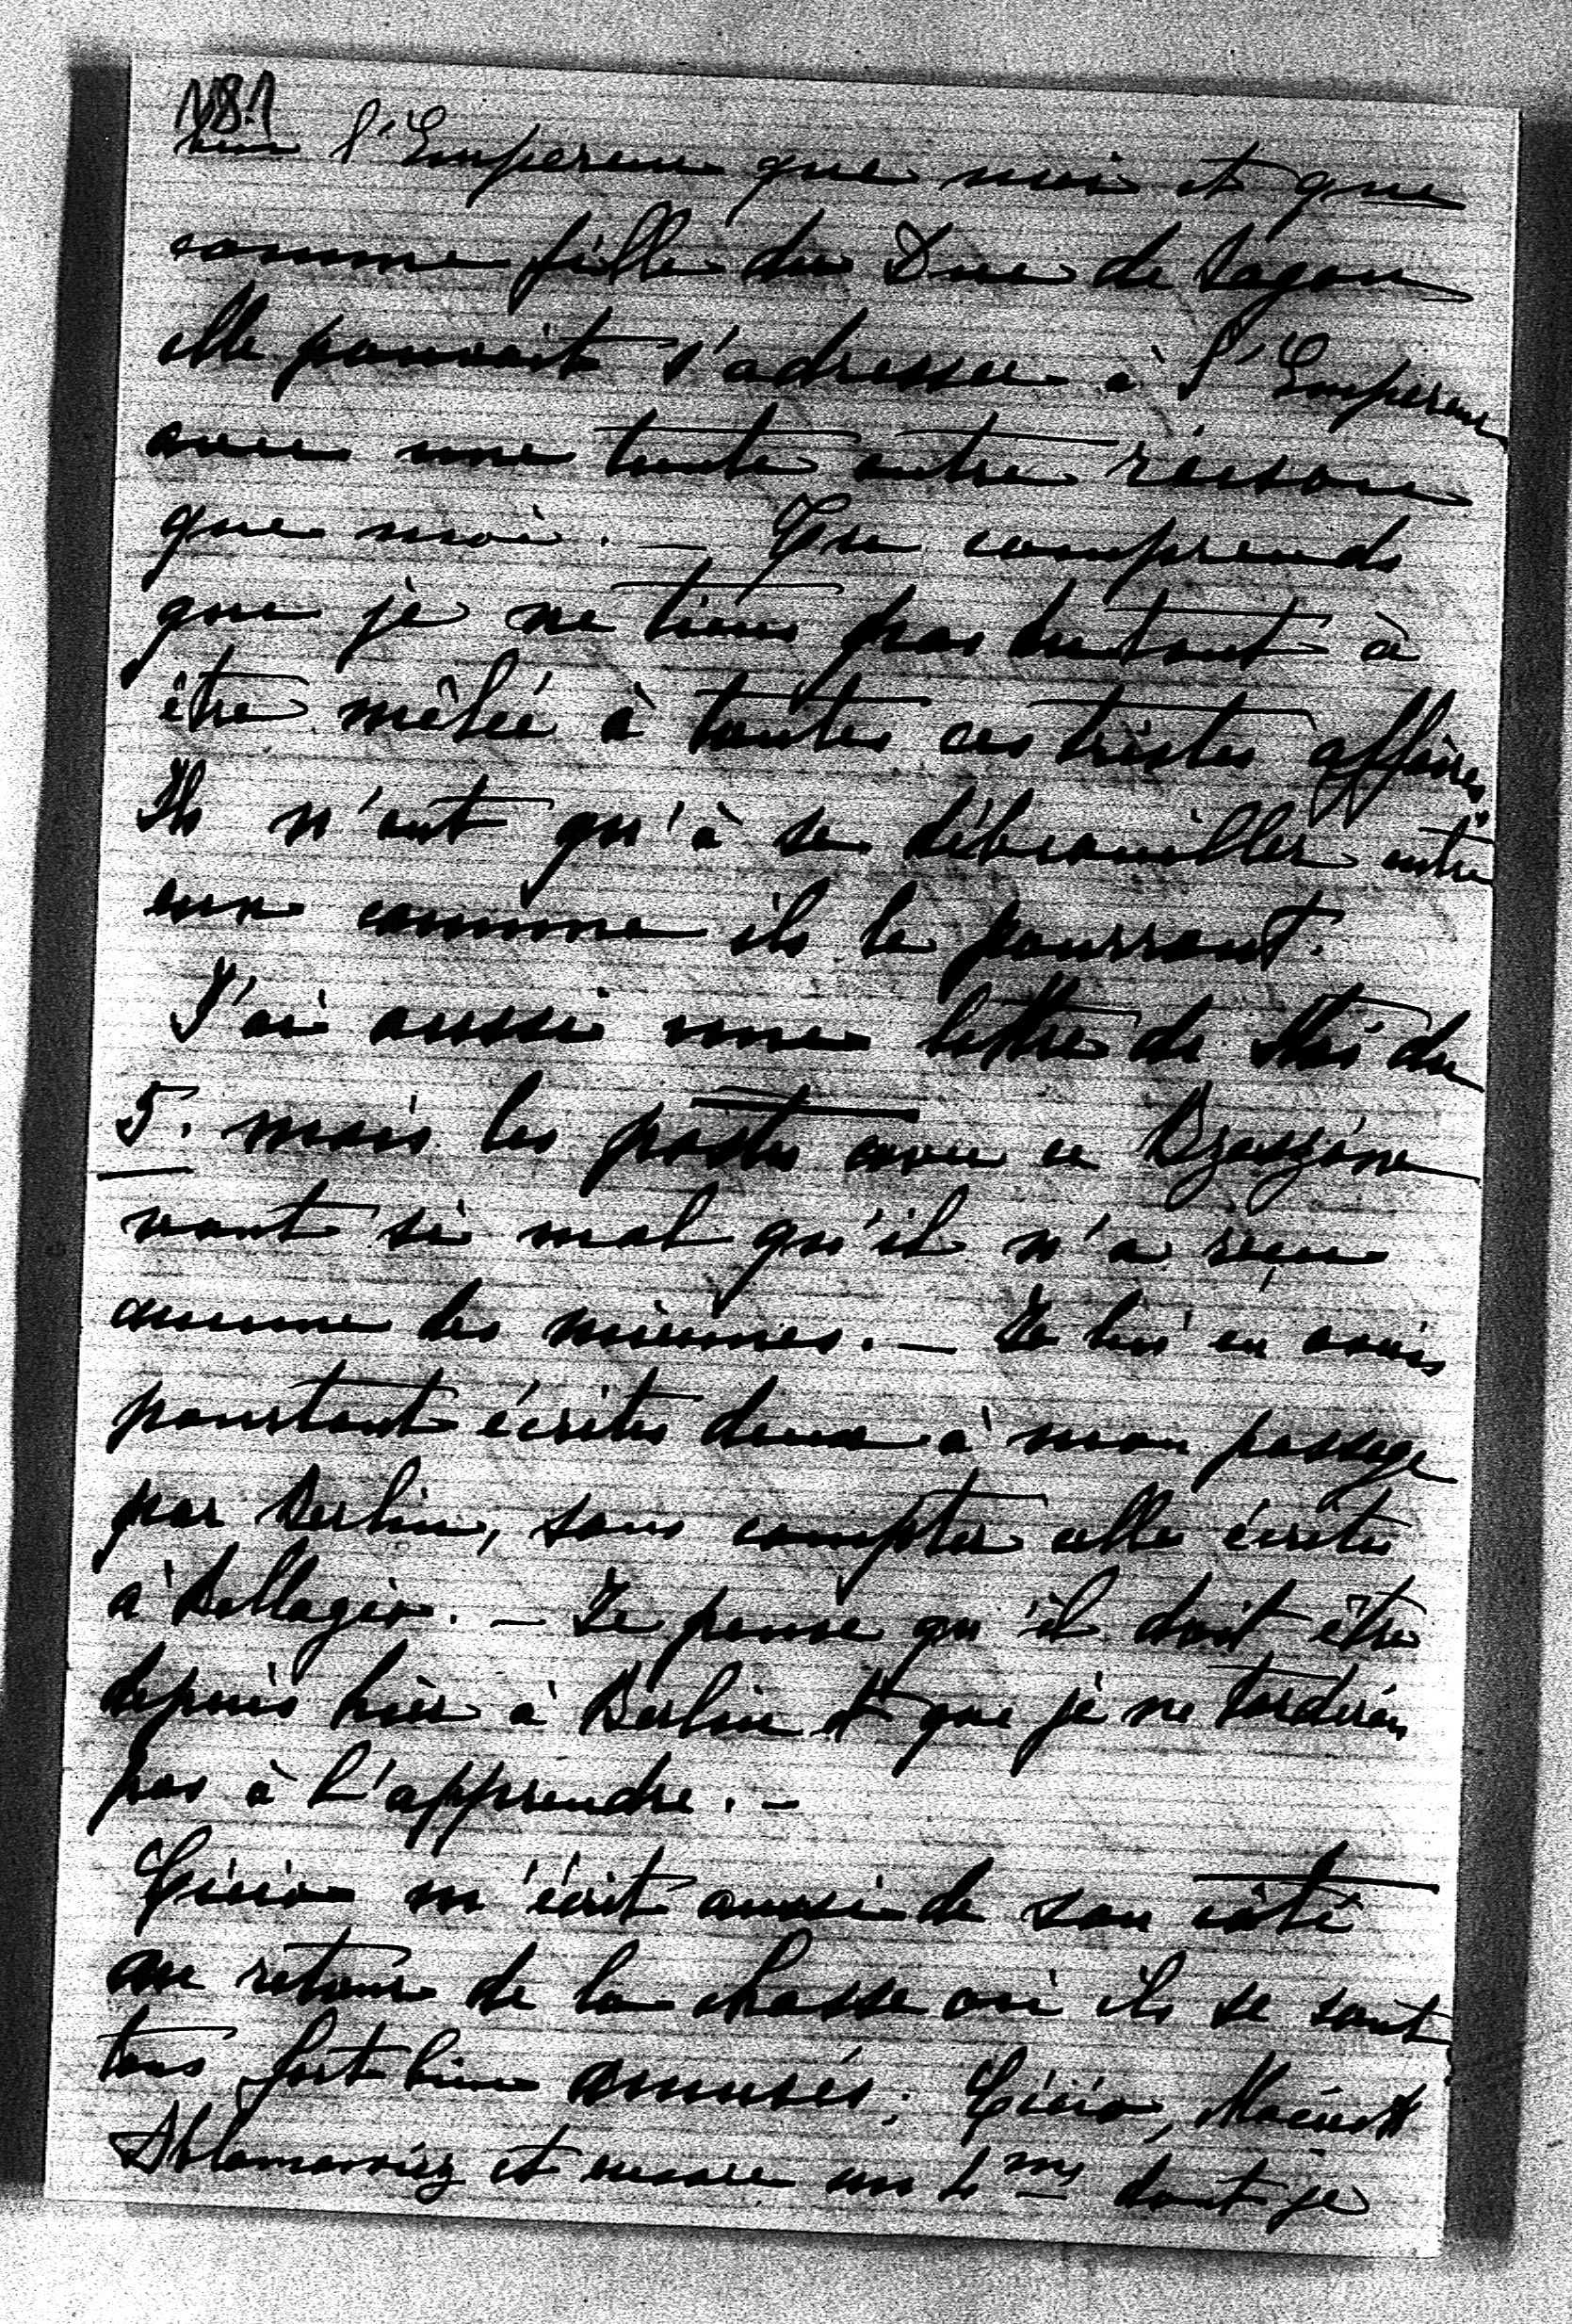 l'Empereur que moi et que
comme fille du Duc de Sagan
elle pouvait s'adresser à l'Empereur
avec une toute autre raison
que moi. — Tu comprends
que je ne tiens pas du tout à
être mêlée à toutes ces tristes affaires.
Ils n'ont qu'à se débrouiller entre
eux comme ils le pourront.
J'ai aussi une lettre de du
5. mais les postes avec ce
vont si mal qu'il n'a reçu
aucune des miennes. — Je lui en avais
pourtant écrites deux à mon passage
par Berlin, sans compter celle écrite
à Bellagio. — Je pense qu'il doit être
depuis hier à Berlin et que je ne tarderai
pas à l'apprendre. —
m'écrit aussi de son côté
au retour de la chasse où ils se sont
tous fort bien amusés;
et encore un 4me dont je